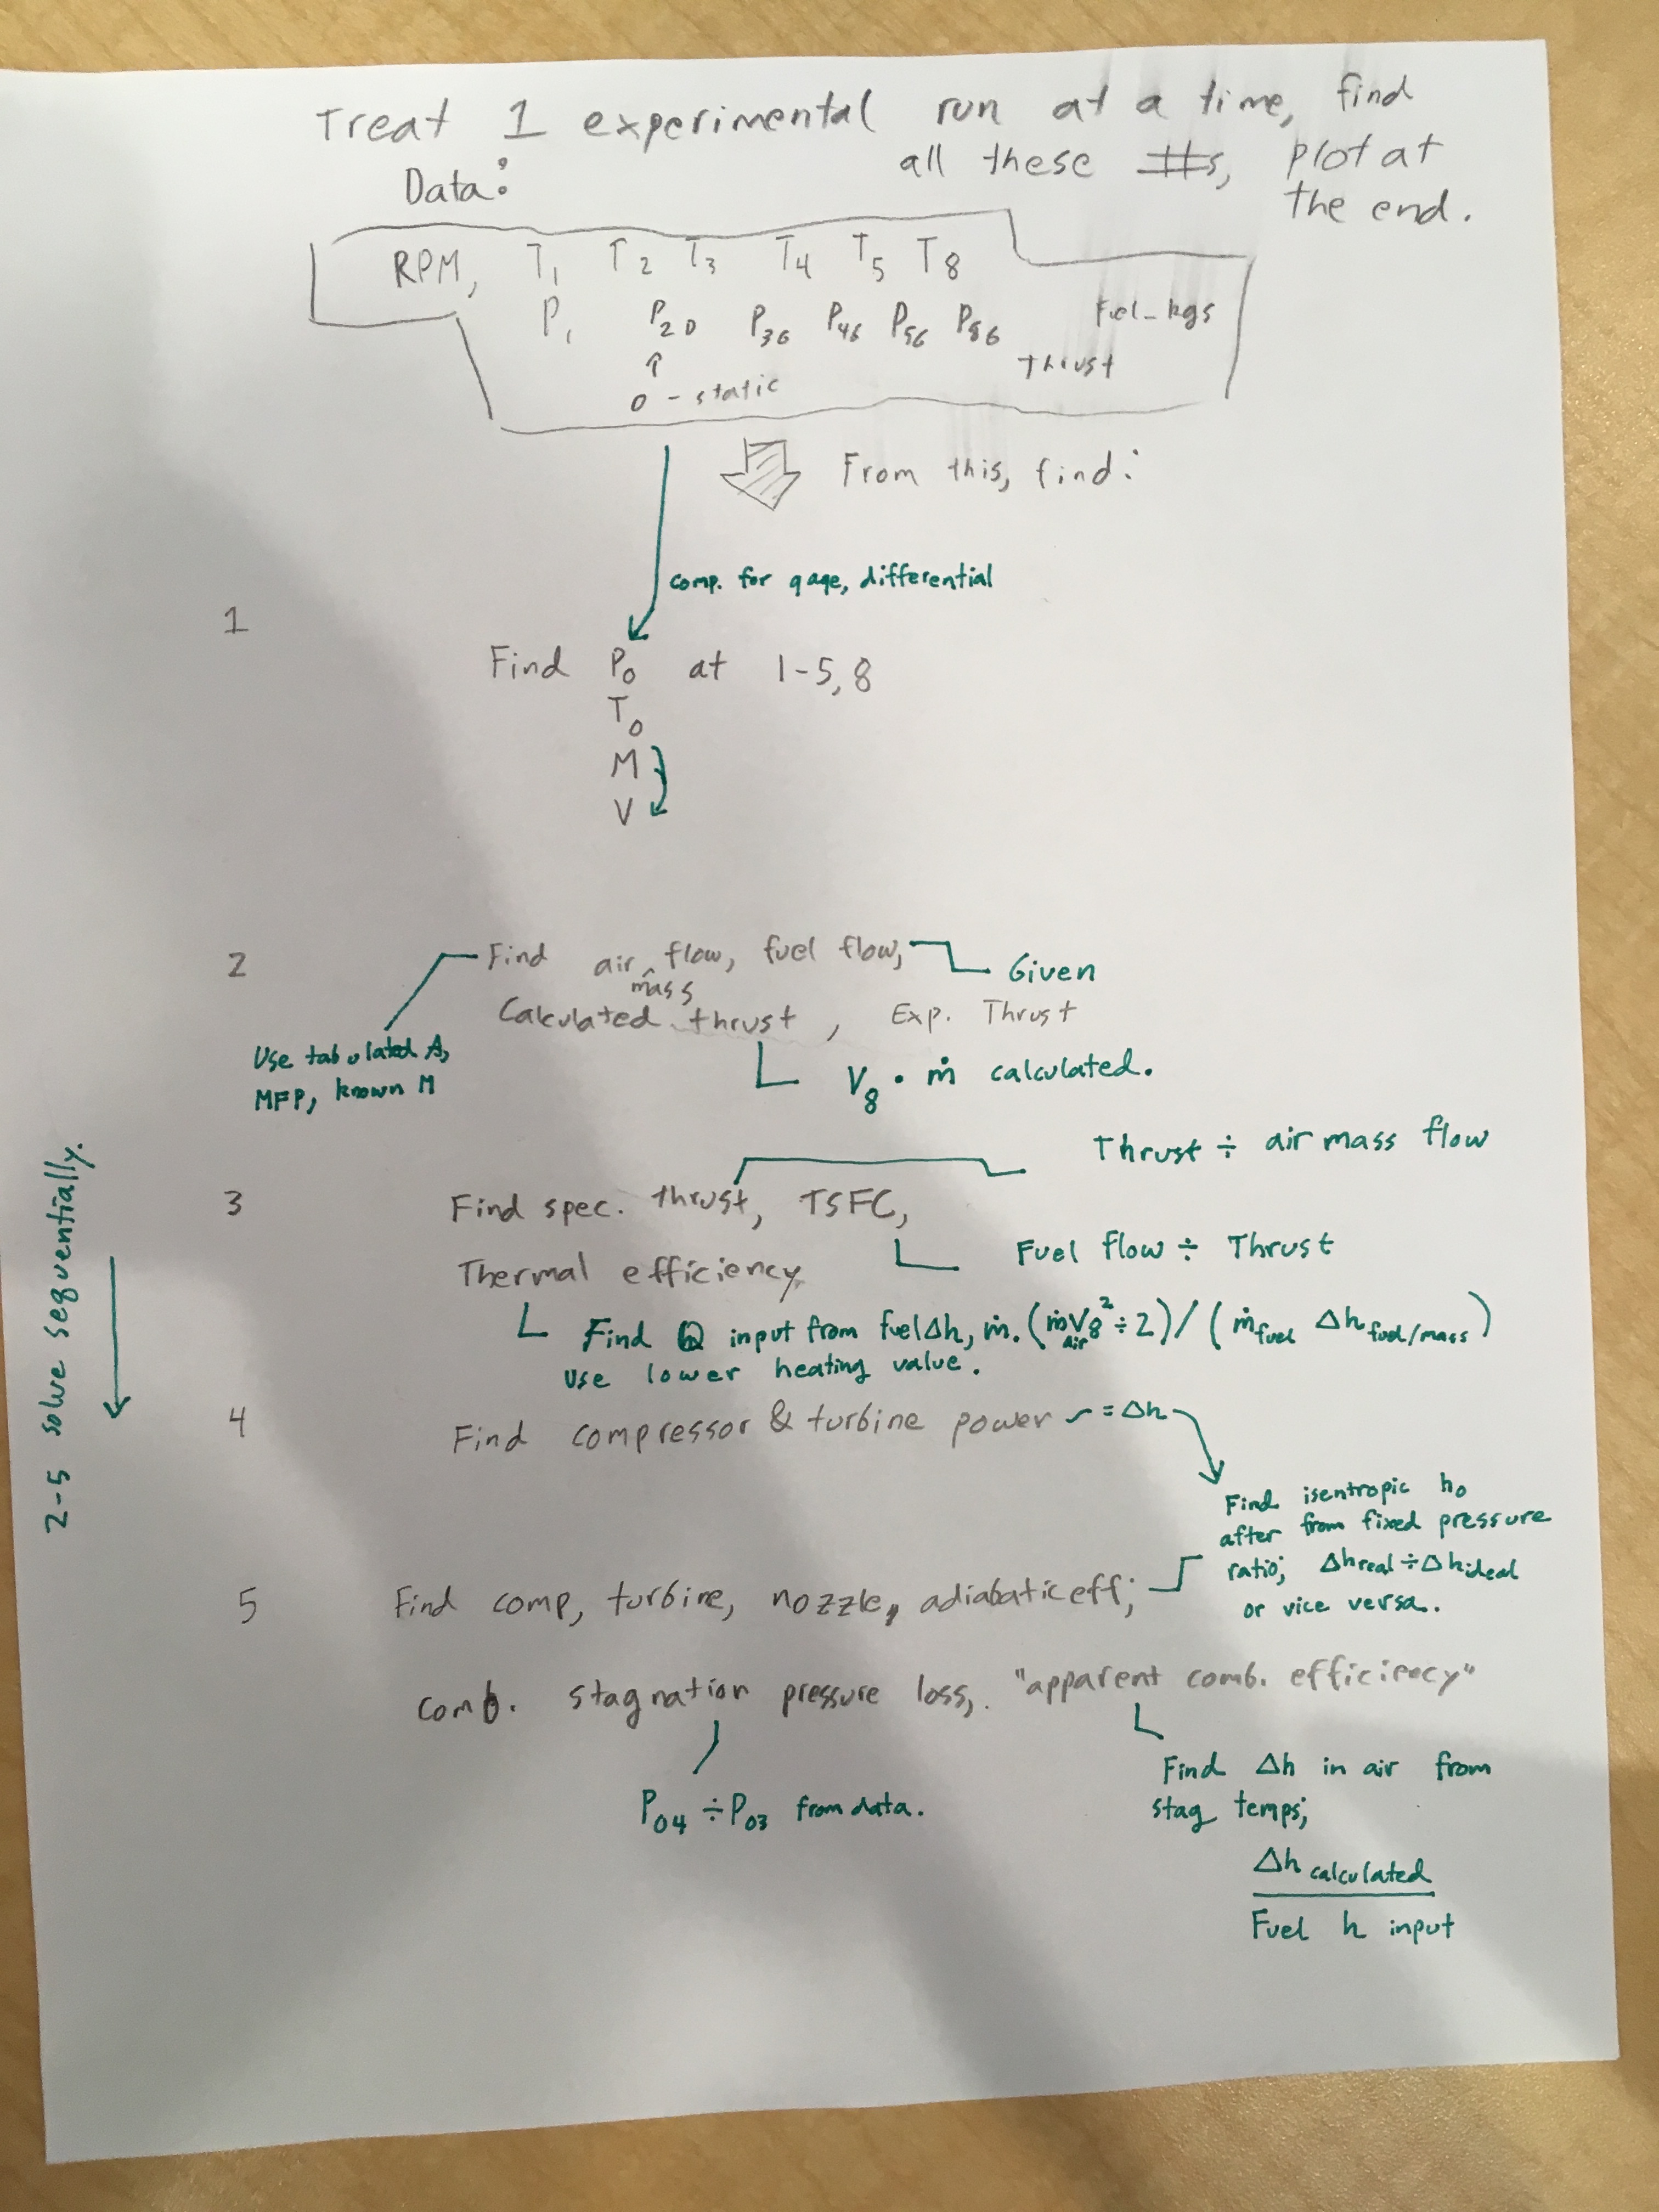 Treat 1 experimental run at a time, find
all these #s, plot at
the end.
Data:
RPM, T1 T2 T3 T4 T5 T8
P1 P2D P3G P4G P5G P8G Fuel_kgs
↑ Thrust
0 - static
From this, find:
comp. for gage, differential
1
Find P0 at 1-5, 8
T0
M
V
2 Find air flow, fuel flow, Given
mass
Calculated thrust, Exp. Thrust
Use tabulated A,
MFP, known M
V8 • ṁ calculated.
Thrust ÷ air mass flow
3 Find spec. thrust, TSFC,
Fuel flow ÷ Thrust
Thermal efficiency
Find Q input from fuel Δh, ṁ. (ṁair V8² ÷ 2) / (ṁfuel Δh fuel/mass)
Use lower heating value.
2-5 solve sequentially.
4 Find compressor & turbine power = Δh
Find isentropic h0
after from fixed pressure
ratio; Δhreal ÷ Δhideal
or vice versa.
5 Find comp, turbine, nozzle, adiabatic eff;
comb. stagnation pressure loss, "apparent comb. efficiency"
P04 ÷ P03 from data.
Find Δh in air from
stag temps;
Δh calculated
Fuel h input